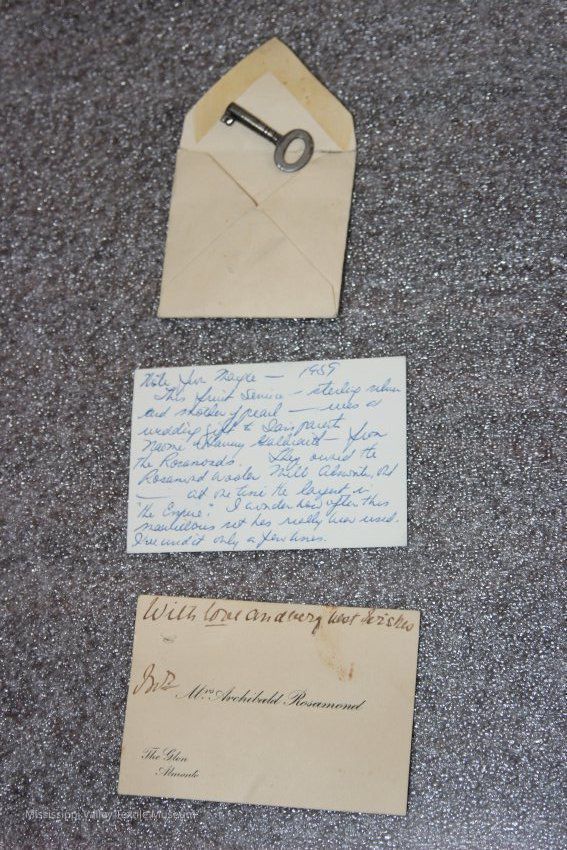 Note for Mayre — 1959
This fruit service — sterling silver
and mother of pearl — was a
wedding gift to Dan's parents
Naomi & Danny Galbraith — from
the Rosamonds. They owned the
Rosamond Woolen Mill Almonte, Ont
— at one time the largest in
"the Empire". I wonder how often this
marvellous set has really been used.
I've used it only a few times.
With love and very best wishes
Mrs Archibald Rosamond
The Glen
Almonte
Mississippi Valley Textile Museum